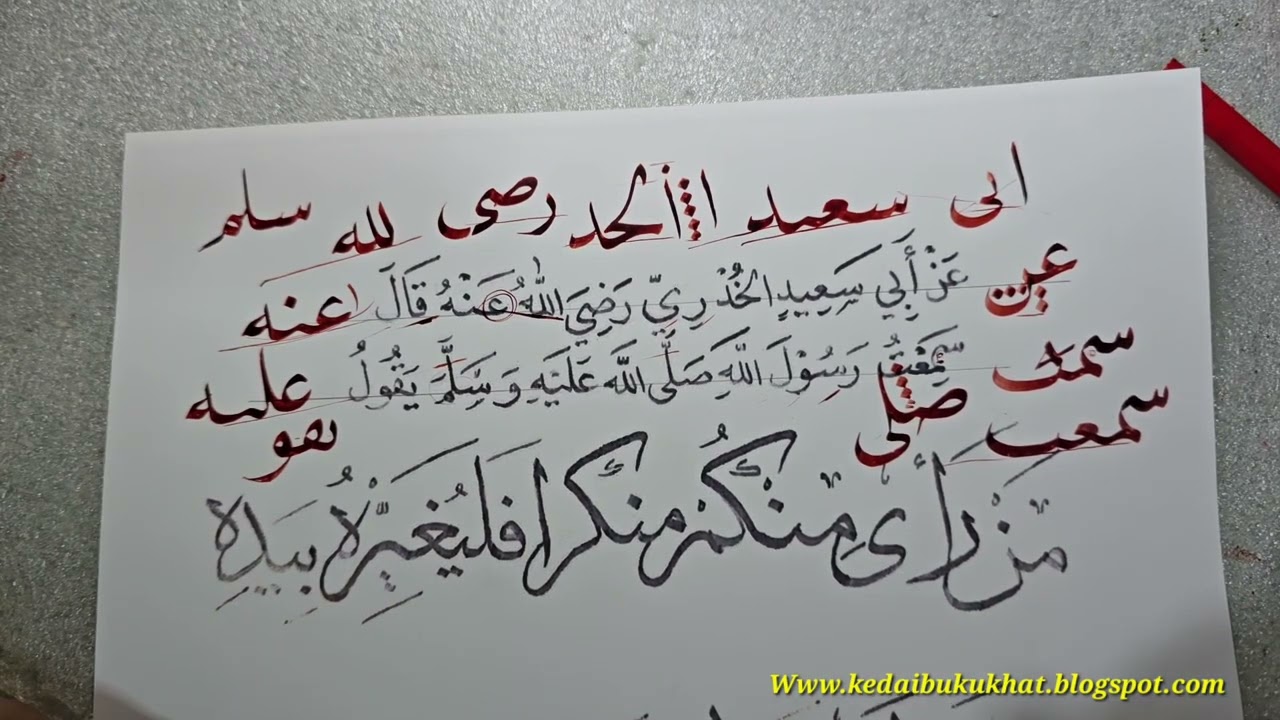 ابى سعيد االحد رضى لله سلم
عين عَنْ أَبِي سَعِيدٍ الخُدْرِيِّ رَضِيَ اللهُ عَنْهُ قَالَ عنه
سمعت سَمِعْتُ رَسُوْلَ اللهِ صَلَّى اللهُ عَلَيْهِ وَسَلَّمَ يَقُولُ عليه
سمعت صلى يقو
مَنْ رَأَى مِنْكُمْ مُنْكَرًا فَلْيُغَيِّرْهُ بِيَدِهِ
Www.kedaibukukhat.blogspot.com